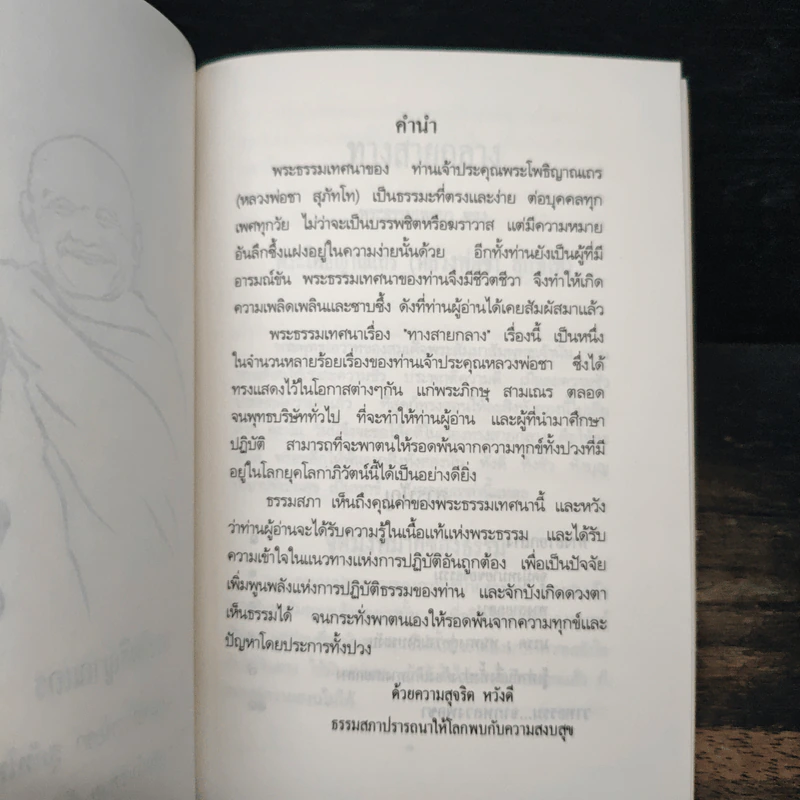 คำนำ
พระธรรมเทศนาของ ท่านเจ้าประคุณพระโพธิญาณเถร
(หลวงพ่อชา สุภัทโท) เป็นธรรมะที่ตรงและง่าย ต่อบุคคลทุก
เพศทุกวัย ไม่ว่าจะเป็นบรรพชิตหรือฆราวาส แต่มีความหมาย
อันลึกซึ้งแฝงอยู่ในความง่ายนั้นด้วย อีกทั้งท่านยังเป็นผู้ที่มี
อารมณ์ขัน พระธรรมเทศนาของท่านจึงมีชีวิตชีวา จึงทำให้เกิด
ความเพลิดเพลินและซาบซึ้ง ดังที่ท่านผู้อ่านได้เคยสัมผัสมาแล้ว
พระธรรมเทศนาเรื่อง "ทางสายกลาง" เรื่องนี้ เป็นหนึ่ง
ในจำนวนหลายร้อยเรื่องของท่านเจ้าประคุณหลวงพ่อชา ซึ่งได้
ทรงแสดงไว้ในโอกาสต่างๆกัน แก่พระภิกษุ สามเณร ตลอด
จนพุทธบริษัททั่วไป ที่จะทำให้ท่านผู้อ่าน และผู้ที่นำมาศึกษา
ปฏิบัติ สามารถที่จะพาตนให้รอดพ้นจากความทุกข์ทั้งปวงที่มี
อยู่ในโลกยุคโลกาภิวัตน์นี้ได้เป็นอย่างดียิ่ง
ธรรมสภา เห็นถึงคุณค่าของพระธรรมเทศนานี้ และหวัง
ว่าท่านผู้อ่านจะได้รับความรู้ในเนื้อแท้แห่งพระธรรม และได้รับ
ความเข้าใจในแนวทางแห่งการปฏิบัติอันถูกต้อง เพื่อเป็นปัจจัย
เพิ่มพูนพลังแห่งการปฏิบัติธรรมของท่าน และจักบังเกิดดวงตา
เห็นธรรมได้ จนกระทั่งพาตนเองให้รอดพ้นจากความทุกข์และ
ปัญหาโดยประการทั้งปวง
ด้วยความสุจริต หวังดี
ธรรมสภาปรารถนาให้โลกพบกับความสงบสุข